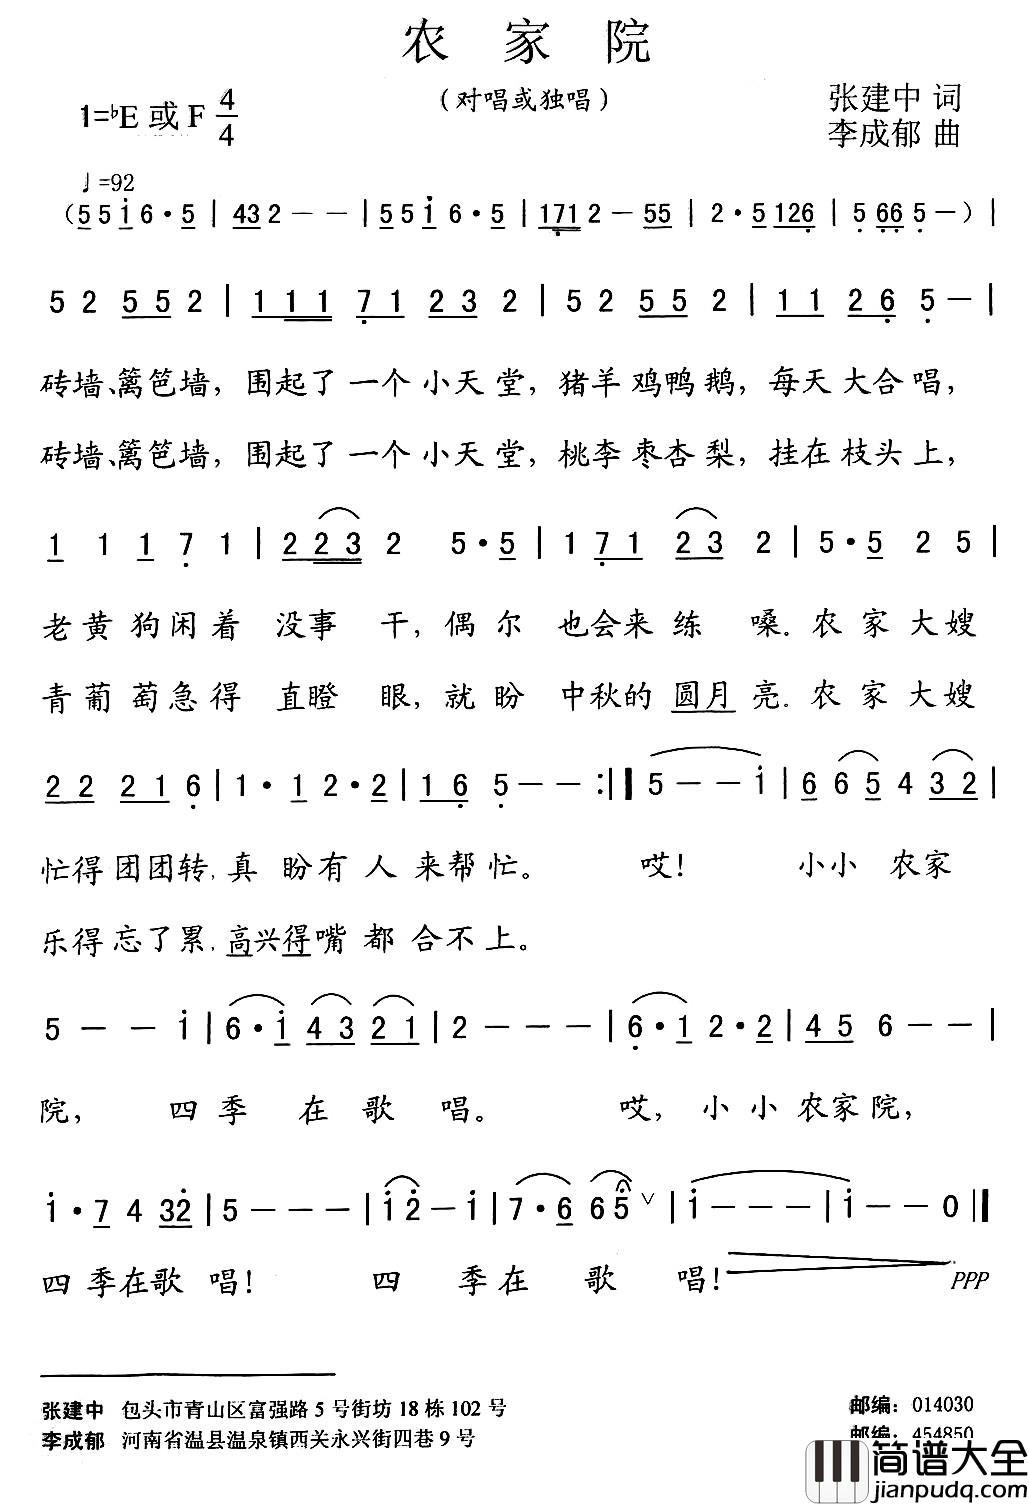 农家院
(对唱或独唱)
1=♭E或F 4/4
张建中 词
李成郁 曲
♩=92
(5 5 i 6·5 | 43 2 - - | 5 5 i 6·5 | 171 2 - 55 | 2·5 126 | 5 66 5 - ) |
5 2 5 5 2 | 1 1 1 7 1 2 3 2 | 5 2 5 5 2 | 1 1 2 6 5 - |
砖墙、篱笆墙, 围起了一个小天堂, 猪羊鸡鸭鹅, 每天大合唱,
砖墙、篱笆墙, 围起了一个小天堂, 桃李枣杏梨, 挂在枝头上,
1 1 1 7 1 | 2 2 3 2 5·5 | 1 7 1 2 3 2 | 5·5 2 5 |
老黄狗闲着没事干, 偶尔也会来练嗓. 农家大嫂
青葡萄急得直瞪眼, 就盼中秋的圆月亮. 农家大嫂
2 2 2 1 6 | 1·1 2·2 | 1 6 5 - - :‖ 5 - - i | 6 6 5 4 3 2 |
忙得团团转, 真盼有人来帮忙。 哎! 小小农家
乐得忘了累, 高兴得嘴都合不上。
5 - - i | 6·i 4 3 2 1 | 2 - - - | 6·1 2·2 | 4 5 6 - - |
院, 四季在歌唱。 哎, 小小农家院,
i·7 4 32 | 5 - - - | i 2 - i | 7·6 6 5 ∨ | i - - - | i - - 0 ‖
四季在歌唱! 四季在歌唱! PPP
张建中 包头市青山区富强路5号街坊18栋102号 邮编: 014030
李成郁 河南省温县温泉镇西关永兴街四巷9号 邮编: 454850
简谱大全
jianpudq.com